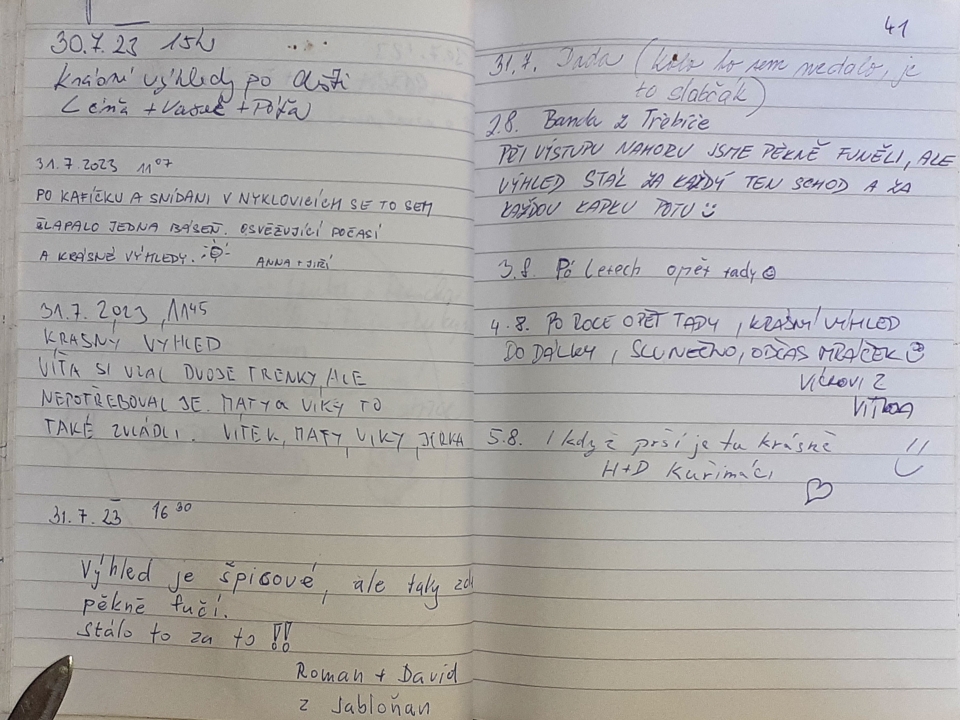 30.7.23 15h
krásné výhledy po dešti
Léňa + Vašek + Póža
31.7.2023 11 07
PO KAFÍČKU A SNÍDANI V NYKLOVICÍCH SE TO SEM
ŠLAPALO JEDNA BÁSEŇ. OSVĚŽUJÍCÍ POČASÍ
A KRÁSNÉ VÝHLEDY. ANNA + JIŘÍ
31.7.2023, 1145
KRASNÝ VÝHLED
VÍŤA SI VZAL DVOJE TRENKY, ALE
NEPOTŘEBOVAL JE. MATY A VIKY TO
TAKÉ ZVLÁDLI. VÍTEK, MATY, VIKY JIRKA
31.7.23 16 30
Výhled je špicové, ale taky
pěkně fučí.
Stálo to za to !!
Roman + David
z Jabloňan
41
31.7. Dada (kolo ho sem nedalo, je
to slabčák)
2.8. Banda z Třebíče
PŘI VÝSTUPU NAHORU JSME PĚKNĚ FUNĚLI, ALE
VÝHLED STÁL ZA KAŽDÝ TEN SCHOD A ZA
KAŽDOU KAPKU POTU ☺
3.8. Pó letech opět tady ☺
4.8. PO ROCE OPĚT TADY, KRÁSNÝ VÝHLED
DO DÁLKY, SLUNEČNO, OBČAS MRÁČEK ☺
Z
5.8. I když prší je tu krásně
H+D Kuřimáci